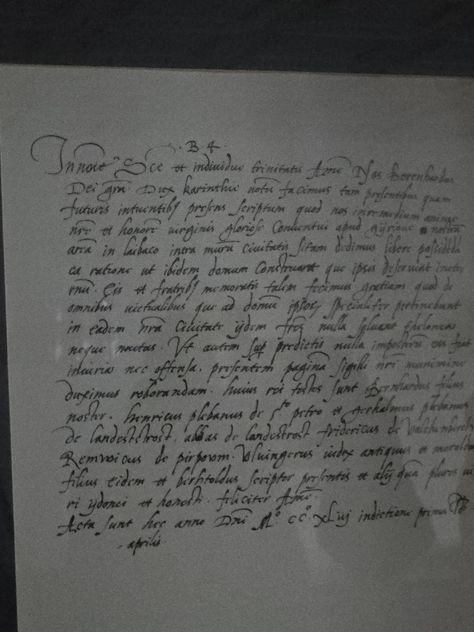 B. 4
In noīe Sce et individue trinitatis Amē Nos Berenhardus
Dei grā Dux Karinthie notū facimus tam presentibus quam
futuris intuentibȝ presens scriptum quod nos in remedium anime
nrē et honorē virginis gloriose Conventui apud
aream in laibaco intra murū Civitatis sitam dedimus libere possidendā
ea ratione ut ibidem domum Construant que ipsis deserviat
Eis et fratribȝ memoratis talem fecimus gratiam quod de
omnibus victualibus que ad domū ipsorȝ specialiter pertinebunt
in eadem nrā Civitate ijdem frēs nulla solvant thelonea
neque mutas. Ut autem sup predictis nulla impostern eis fiat
iniuria nec offensa, presentem pagina sigilli nrī munimine
duximus roborandam. huius rei testes sunt Bernhardus filius
noster. henricus plebanus de s.to petro et Archalmus plebanus
de landestrost, abbas de landestrost fridericus de
Remvoicus de pirpovm. Vlvingerus iudex antiquus et
filius eidem et bertoldus scriptor presentis et alij qua plures
ri ydonei et honesti. feliciter Amē
Acta sunt hec anno Dnī Mº ccº xLij indictione prima
aprilis.